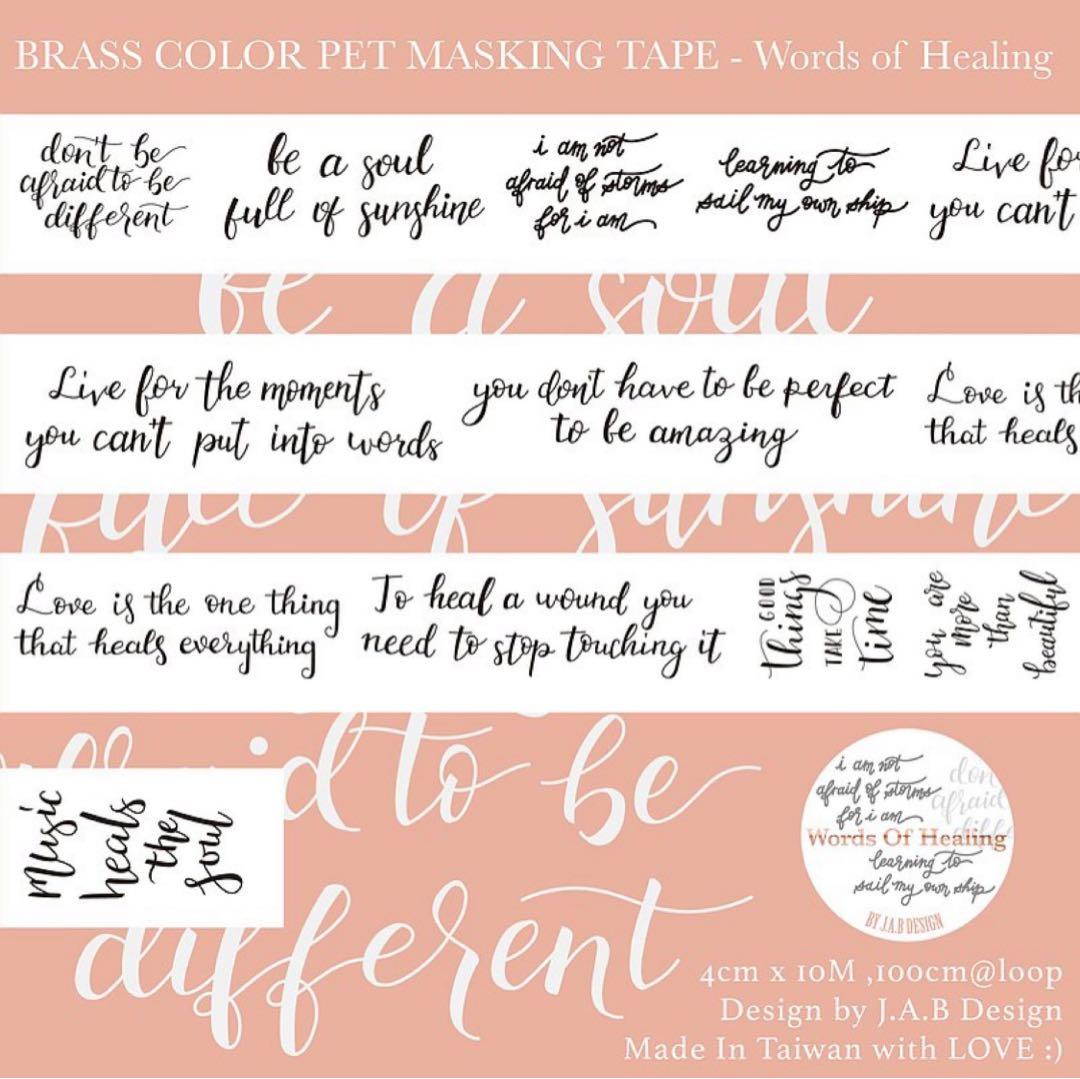 BRASS COLOR PET MASKING TAPE - Words of Healing
don't be
afraid to be
different
be a soul
full of sunshine
i am not
afraid of storms
for i am
learning to
sail my own ship
Live for
you can't
be a soul
Live for the moments
you can't put into words
you don't have to be perfect
to be amazing
Love is th
that heals
full of sunshine
Love is the one thing
that heals everything
To heal a wound you
need to stop touching it
GOOD
things
TAKE
time
you are
more
than
beautiful
afraid to be
different
music
heals
the
soul
i am not
afraid of storms
for i am
don
afraid
diff
Words Of Healing
learning to
sail my own ship
BY J.A.B DESIGN
4cm x 10M ,100cm@loop
Design by J.A.B Design
Made In Taiwan with LOVE :)